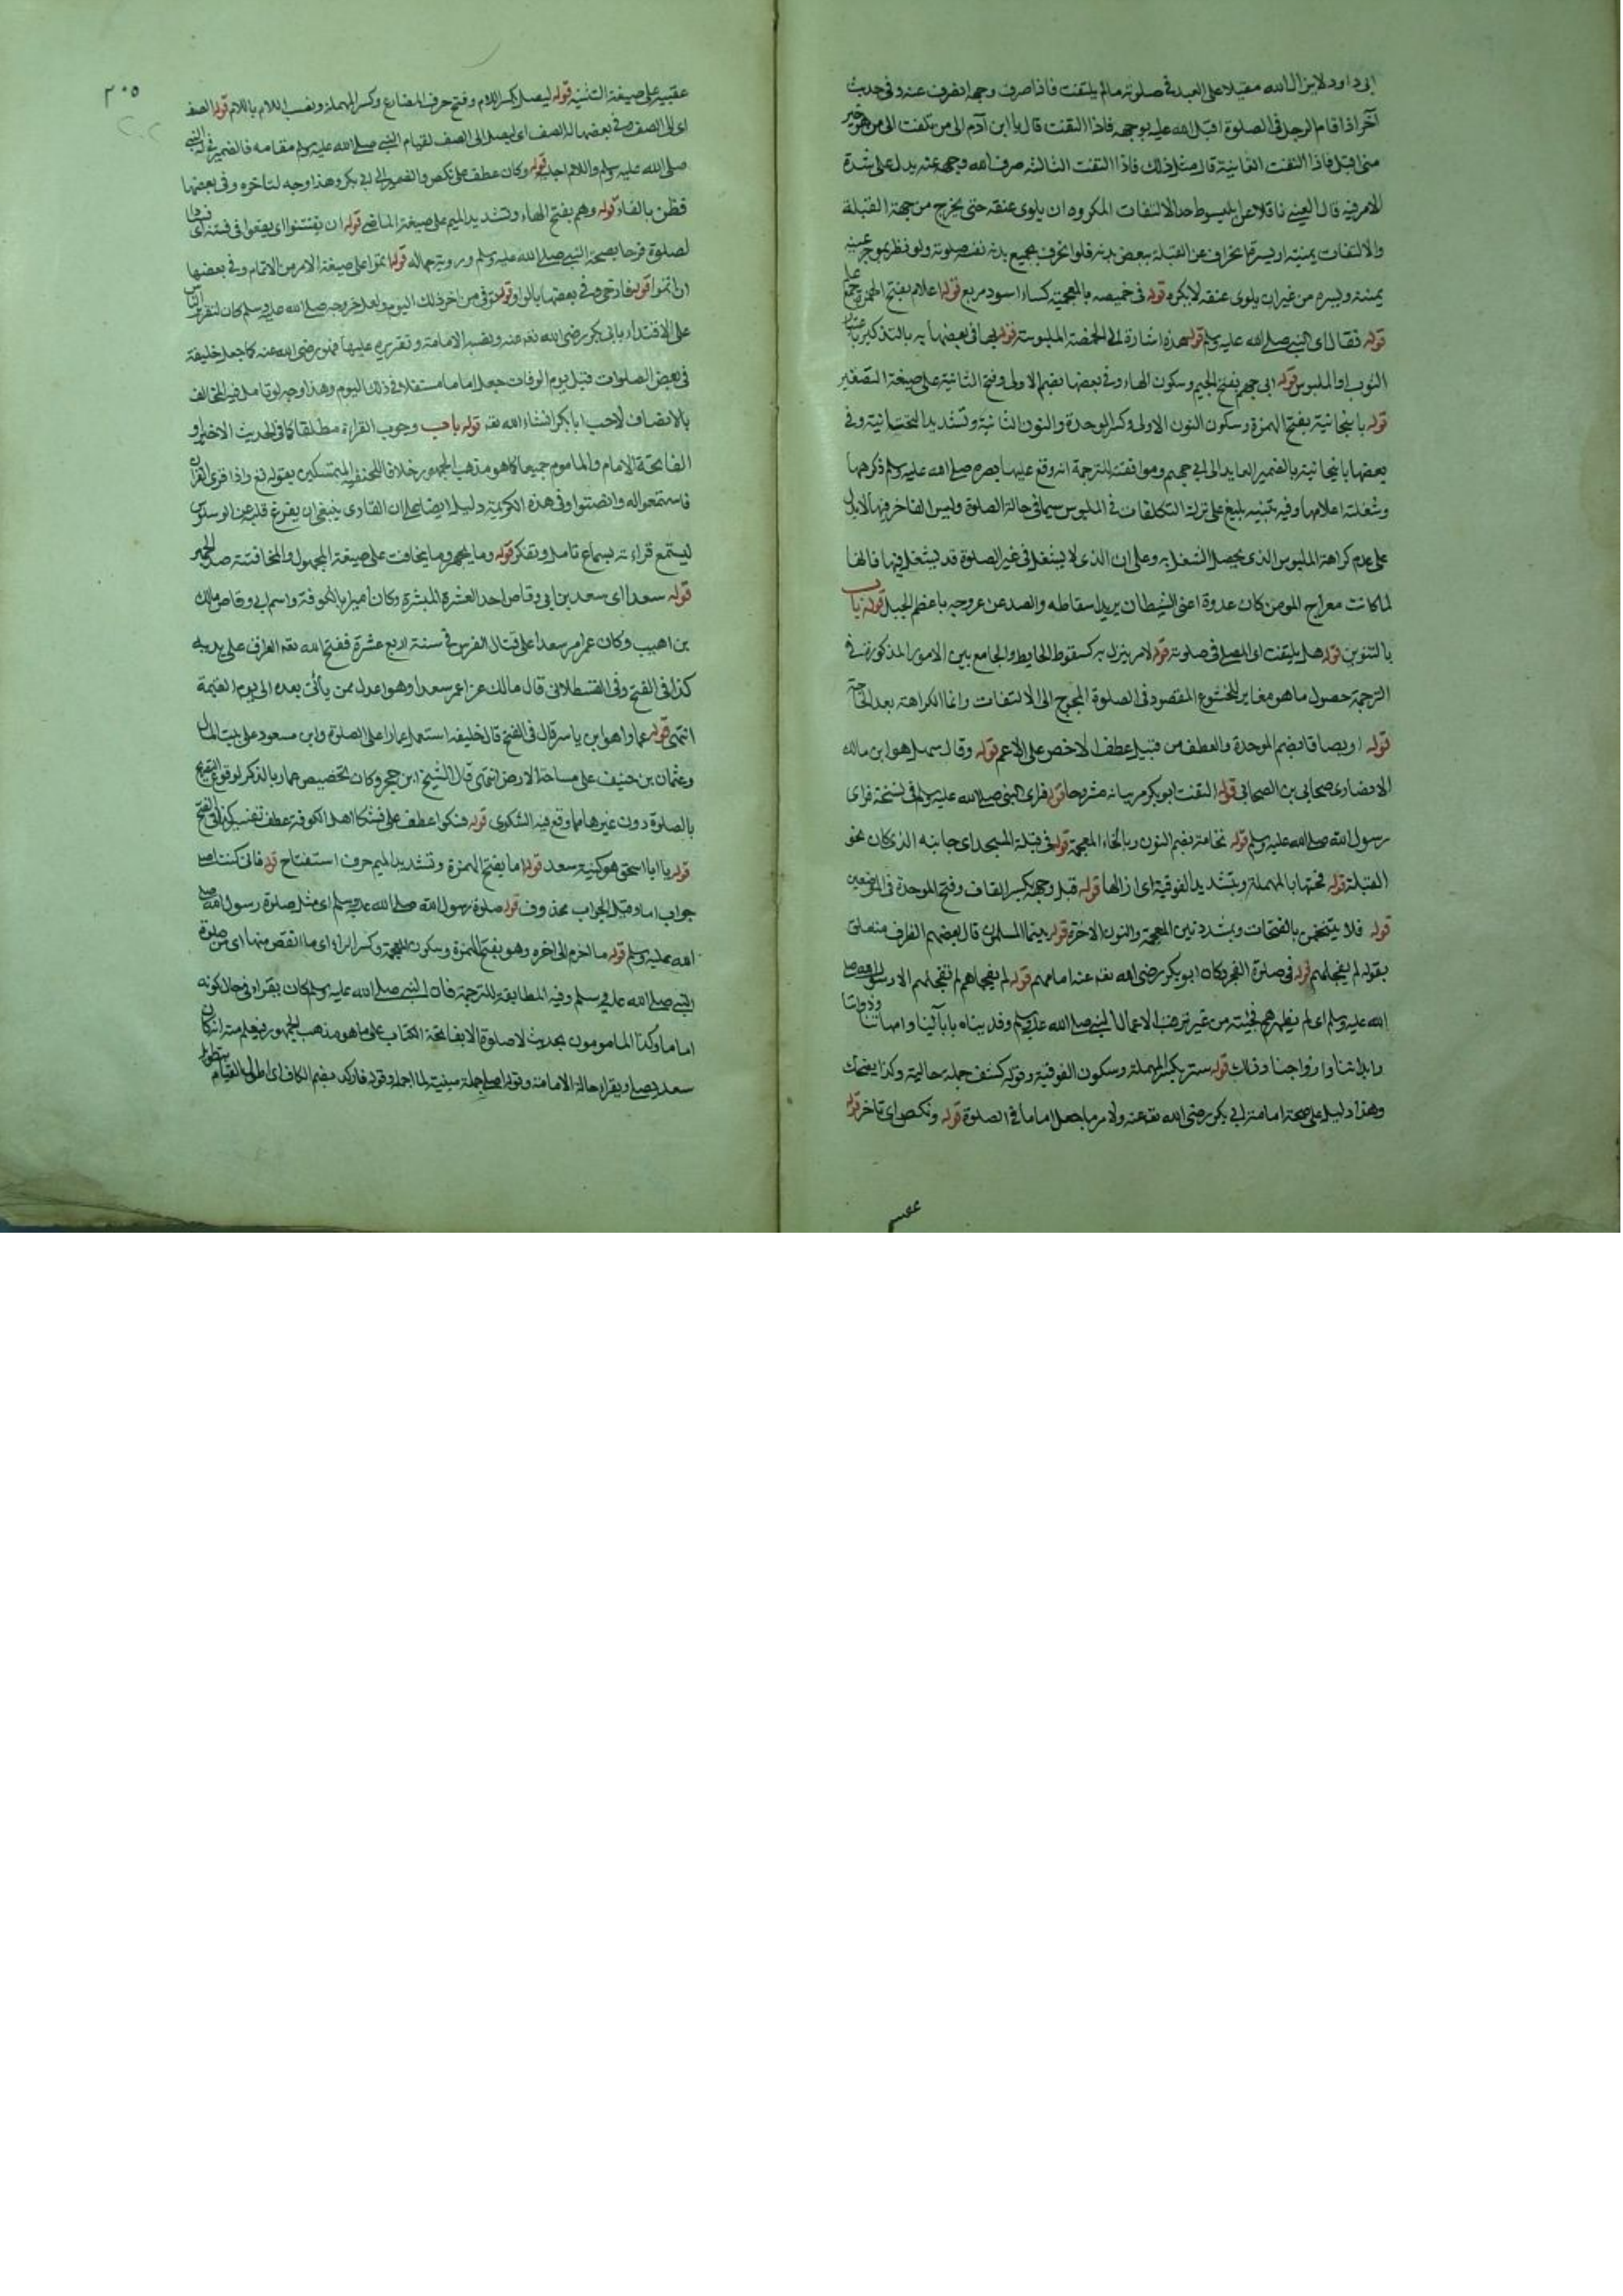 ابى داود لا يزال الله مقبلا على العبد فى صلوته مالم يلتفت فاذا صرف وجهه انصرف عنه وفى حديث
آخر اذا قام الرجل فى الصلوة اقبل الله عليه بوجهه فاذا التفت قال يا ابن آدم الى من تلتفت الى من هو خير
منى اقبل فاذا التفت الثانية قال مثل ذلك فاذا التفت الثالثة صرف الله وجهه عنه يدل على شدة
الامر فيه قال العينى ناقلا عن المبسوط حد الالتفات المكروه ان يلوى عنقه حتى يخرج من جهة القبلة
والالتفات يمنة او يسرة انحراف عن القبلة ببعض بدنه فلو انحرف بجميع بدنه تفسد صلوته ولو نظر بموخر عينيه
يمنة ويسرة من غير ان يلوى عنقه لا يكره قوله فى خميصه بالمعجمة كساء اسود مربع قوله اعلام بفتح الهمزة جمع علم
قوله فقال اى النبى صلى الله عليه وسلم قوله هذه اشارة الى الخمصة الملبوسة قوله بها فى بعضها به بالتذكير باعتبار
الثوب او الملبوس قوله ابى جهم بفتح الجيم وسكون الهاء وفى بعضها بضم الاولى وفتح الثانية على صيغة التصغير
قوله بانبجانية بفتح الهمزة وسكون النون الاولى وكسر الموحدة والنون الثانية وتشديد التحتانية وفى
بعضها بانبجانيته بالضمير العايد الى ابى جهم وموافقته للترجمة انه وقع عليها بصره صلى الله عليه وسلم ذكرهما
وشغلته اعلامها وفيه تنبيه بليغ على ترك التكلفات فى الملبوس سيما فى حالة الصلوة وليس الفاخر فيها لا يدل
على عدم كراهة الملبوس الذى يحصل الشغل به وعلى ان الذى لا يشغل فى غير الصلوة قد يشغل فيها فانها
لما كانت معراج المومن كان عدوه اعنى الشيطان يريد اسقاطه والصد عن عروجه باعظم الحيل قوله باب
بالتنوين قوله هل يلتفت اى المصلى فى صلوته قوله لامر ينزل به كسقوط الحايط والجامع بين الامور المذكورة فى
الترجمة حصول ما هو مغاير للخشوع المقصود فى الصلوة المحوج الى الالتفات وانما الكراهة بعد الحاجة
قوله او بصاقا بضم الموحدة والعطف من قبيل عطف الاخص على الاعم قوله وقال سهل هو ابن مالك
الانصارى صحابى بن الصحابى قوله التفت ابو بكر مر بيانه مشروحا قوله فراى النبى صلى الله عليه وسلم وفى نسخة فراى
رسول الله صلى الله عليه وسلم قوله نخامة بضم النون وبالخاء المعجمة قوله فى قبلة المسجد اى جانبه الذى كان نحو
القبلة قوله فحتها بالمهملة وبتشديد الفوقية اى ازالها قوله قبل وجهه بكسر القاف وفتح الموحدة فى الموضعين
قوله فلا يتنخمن بالفتحات وبشددتين المعجمة والنون الاخرة قوله بينما المسلمون قال بعضهم الظرف متعلق
بقوله لم يفجاهم قوله فى صلوة الفجر وكان ابو بكر رضى الله تعه عنه امامهم قوله لم يفجاهم لم تفجاهم الا رسول الله صلى
الله عليه وسلم اى لم يظهرهم فجئة من غير ترقب الا جمال النبى صلى الله عليه وسلم وفديناه بابآئينا وامهاتنا وذواتنا
وابنائنا وازواجنا وذلك قوله ستر بكسر المهملة وسكون الفوقية وقوله كشف جملة حالية وكذا يضحك
وهذا دليل على صحة امامة ابى بكر رضى الله تعه عنه ولامر ما جعل اماما فى الصلوة قوله ونكص اى تاخر قوله
عقبيه
٣٠٥
عقبيه على صيغة التثنية قوله ليصل بكسر اللام وفتح حرف المضارع وكسر المهملة ونصب اللام باللام قوله الصف
اى الى الصف وفى بعضها له الصف اى ليصل الى الصف لقيام النبى صلى الله عليه وسلم مقامه فالضمير فى له للنبى
صلى الله عليه وسلم واللام اجلية قوله وكان عطف على نكص والضمير الى ابى بكر وهذا وجه لتاخره وفى بعضها
فظن بالفاء قوله وهم بفتح الهاء وتشديد الميم على صيغة الماضى قوله ان يفتتنوا اى يقعوا فى فتنة اى فساد
لصلوة فرحا بصحة النبى صلى الله عليه وسلم ورويته جماله قوله اتموا على صيغة الامر من الاتمام وفى بعضها
ان اتموا قوله فارخى وفى بعضها بالواو قوله توفى من اخر ذلك اليوم ولعل خروجه صلى الله عليه وسلم كان لتقرير الناس
على الاقتداء بابى بكر رضى الله تعه عنه ونصب الامامة وتقريره عليها فهو رضى الله عنه كما جعل خليفة
فى بعض الصلوات قبل يوم الوفات جعل اماما مستقلا فى ذلك اليوم وهذا وجه لو تامل فيه المخالف
بالانصاف لاحب ابا بكر انشاء الله تعه قوله باب وجوب القراءة مطلقا كما فى الحديث الاخير او
الفاتحة للامام والماموم جميعا كما هو مذهب الجمهور خلافا للحنفية المتمسكين بقوله تع واذا قرئ القرآن
فاستمعوا له وانصتوا وفى هذه الكريمة دليل ايضا على ان القارى ينبغى ان يفرغ قلبه عن الوساوس
ليستمع قراءته بسماع تامل وتفكر قوله وما يجهر وما يخافت على صيغة المجهول والمخافتة ضد الجهر
قوله سعدا اى سعد بن ابى وقاص احد العشرة المبشرة وكان اميرا بالكوفة واسم ابى وقاص مالك
بن اهيب وكان عمر امر سعدا على قتال الفرس فى سنة اربع عشرة ففتح الله تعه العراق على يديه
كذا فى الفتح وفى القسطلانى قال مالك عزل عمر سعدا وهو اعدل ممن يأتى بعده الى يوم القيمة
انتهى قوله عمارا هو ابن ياسر قال فى الفتح قال خليفه استعمل عمارا على الصلوة وابن مسعود على بيت المال
وعثمان بن حنيف على مساحة الارض انتهى قال الشيخ ابن حجر وكان تخصيص عمار بالذكر لوقوع التصريح
بالصلوة دون غيرها مما وقع فيه الشكوى قوله فشكوا عطف على فشكا اهل الكوفة عطف تفسير كذا فى الفتح
قوله يا ابا اسحق هو كنية سعد قوله اما بفتح الهمزة وتشديد الميم حرف استفتاح قوله فانى كنت اصلى
جواب اما وقيل الجواب محذوف قوله صلوة رسول الله صلى الله عليه وسلم اى مثل صلوة رسول الله صلى
الله عليه وسلم قوله ما اخرم الى اخره وهو بفتح الهمزة وسكون المعجمة وكسر الراء اى ما انقص منها اى من صلوة
النبى صلى الله عليه وسلم وفيه المطابقة للترجمة فان النبى صلى الله عليه وسلم كان يقرا وفى حال كونه
اماما وكذا المامومون بحديث لا صلوة الا بفاتحة الكتاب على ما هو مذهب الجمهور فيعلم منه ان كان
سعد يصلى ويقرا حالة الامامة وقوله اصلى جملة مبينة لما اجمله وقوله فاركد بضم الكاف اى اطول القيام بتطويل